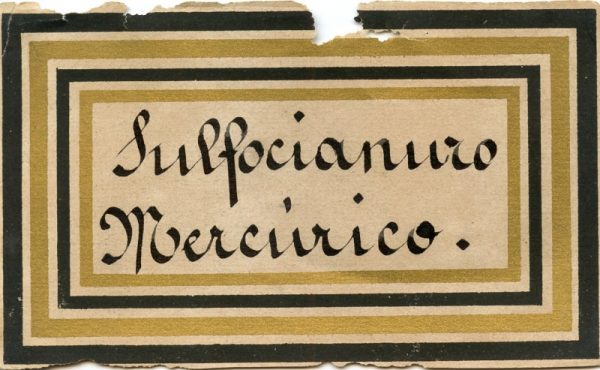 Sulfocianuro
Mercúrico.